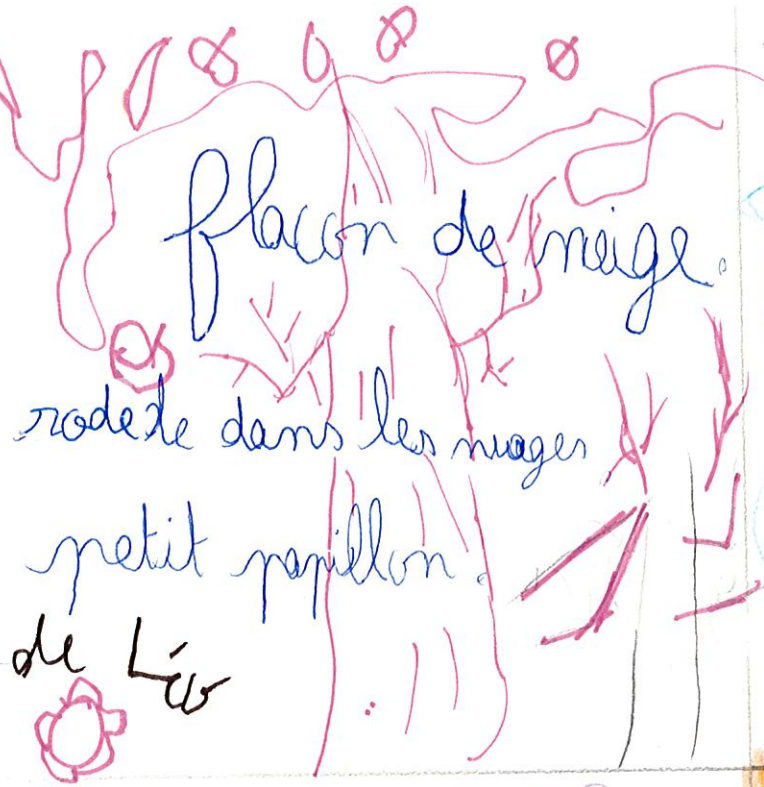 flacon de neige.
rodete dans les nuages
petit papillon.
de Léo